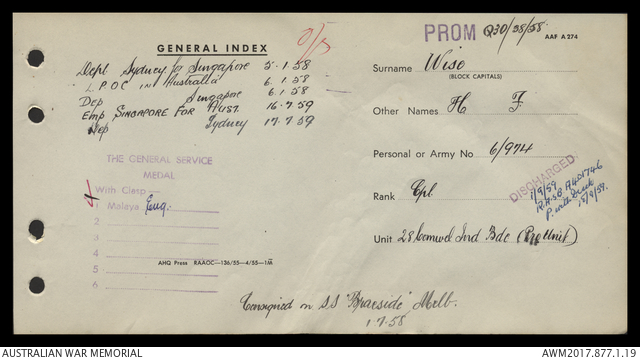 GENERAL INDEX
PROM Q30/38/58 AAF A 274
Depl Sydney for Singapore 5.1.58
L.P.O.C in Australia 6.1.58
Dep Singapore 6.1.58
Emp SINGAPORE FOR AUST. 16.7.59
Dep Sydney 17.7.59
Surname Wise
(BLOCK CAPITALS)
Other Names H F.
Personal or Army No 6/974
Rank Cpl
DISCHARGED
1/9/59
15/9/59.
Unit 28 Comwel Ind Bde (Pro Unit)
THE GENERAL SERVICE
MEDAL
1 With Clasp—
Malaya Eng.
2
3
4
5
6
AHQ Press RAAOC—136/55—4/55—1M
Consigned on S.S "Braeside" Melb.
1.7.58
AUSTRALIAN WAR MEMORIAL
AWM2017.877.1.19